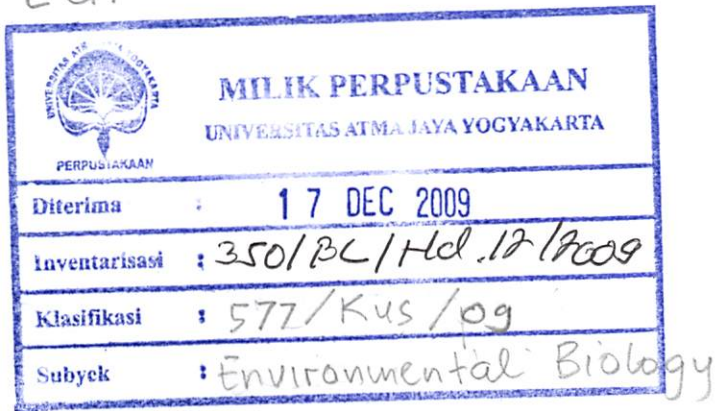 UNIVERSITAS ATMA JAYA YOGYAKARTA
PERPUSTAKAAN
MILIK PERPUSTAKAAN
UNIVERSITAS ATMA JAYA YOGYAKARTA
Diterima : 17 DEC 2009
Inventarisasi : 350/BL/Hd.12/2009
Klasifikasi : 577/Kus/09
Subyek : Environmental Biology